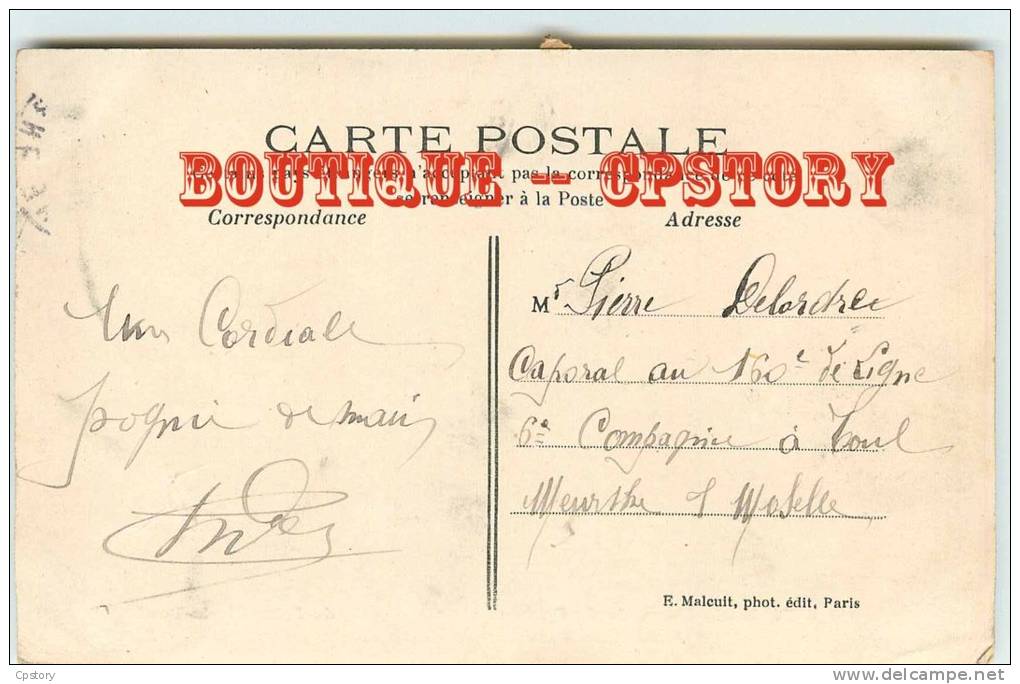 CARTE POSTALE
BOUTIQUE -- CPSTORY
pas la correspondance
se renseigner à la Poste
Correspondance
Adresse
Une Cordiale
pognie de main
Mr Pierre Delordre
Caporal au 160e de Ligne
6e Compagnie à Toul
Meurthe & Moselle
E. Malcuit, phot. édit, Paris
Cpstory
www.delcampe.net